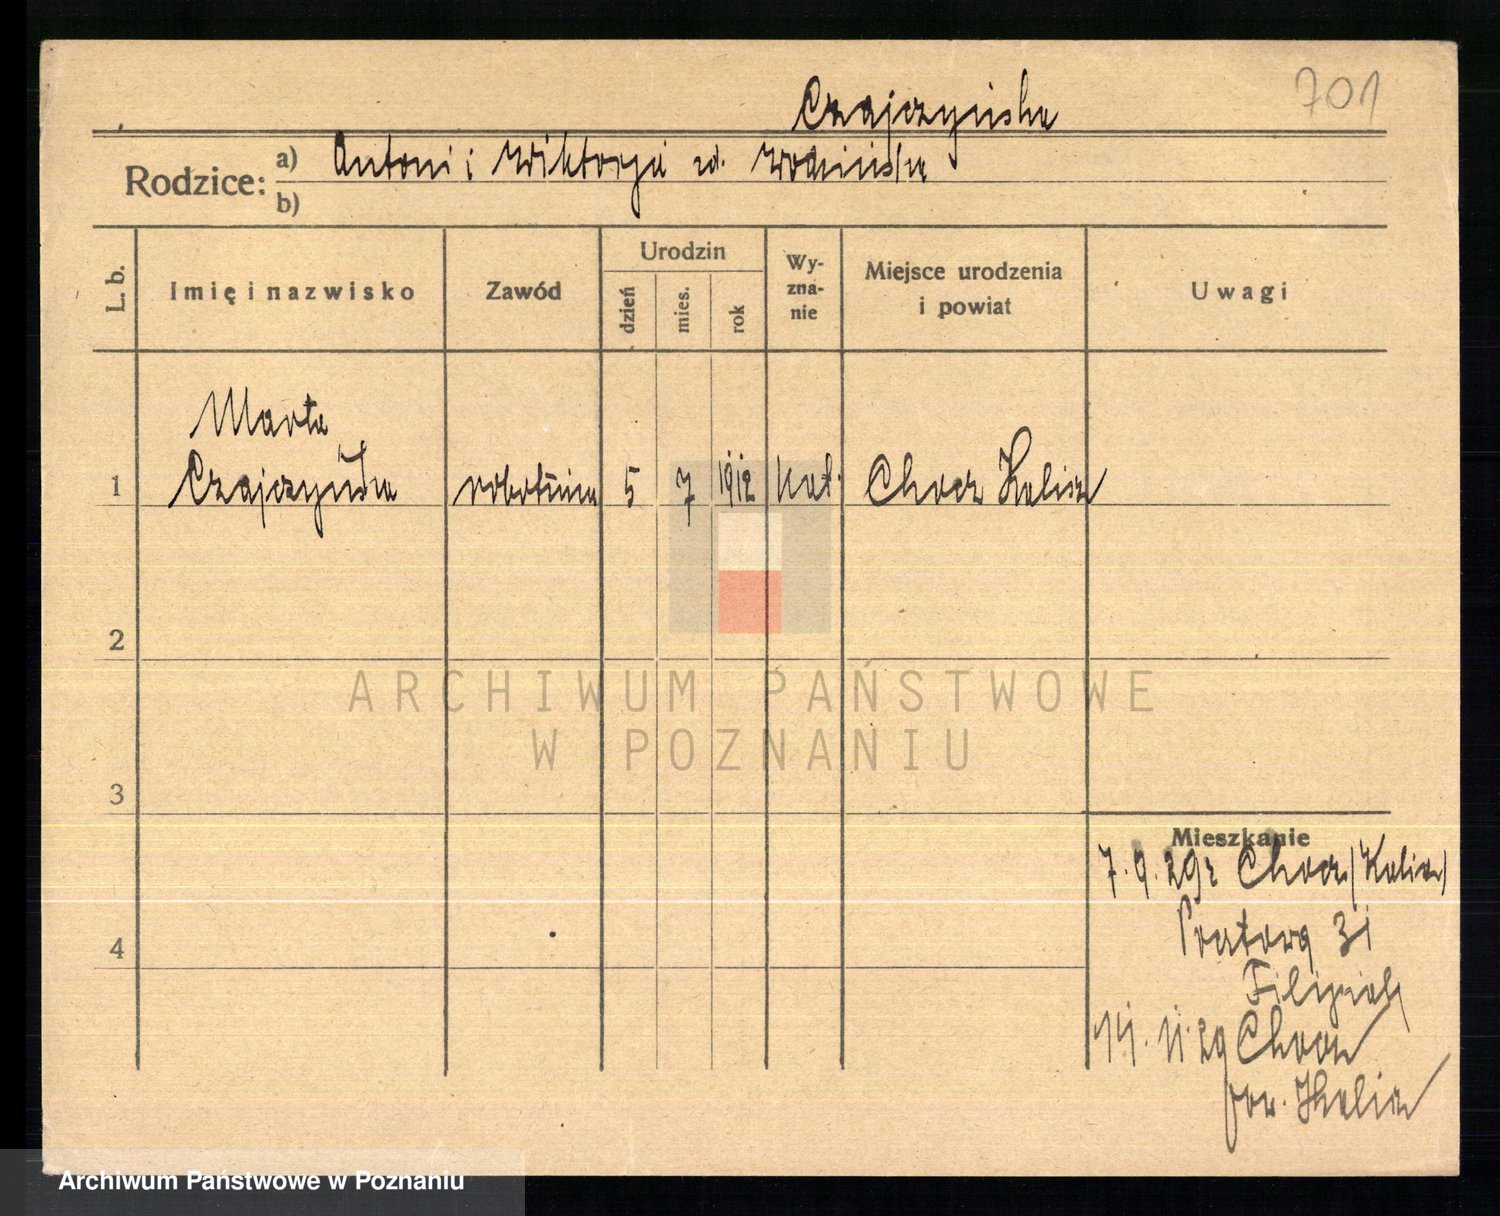 701
Czajczyńska
Rodzice: a) Antoni i Wiktorja z d. Woźnińska
b)
L. b. Imię i nazwisko Zawód Urodzin dzień mies. rok Wyznanie Miejsce urodzenia i powiat Uwagi
Marta
1 Czajczyńska robotnica 5 7 1912 kat. Chocz Kalisz
2
ARCHIWUM PAŃSTWOWE
W POZNANIU
3
Mieszkanie
7. 9. 29r Chocz (Kalisz)
31
4
Filipiak
14. 11. 29 Chocz
pow. Kalisz
Archiwum Państwowe w Poznaniu